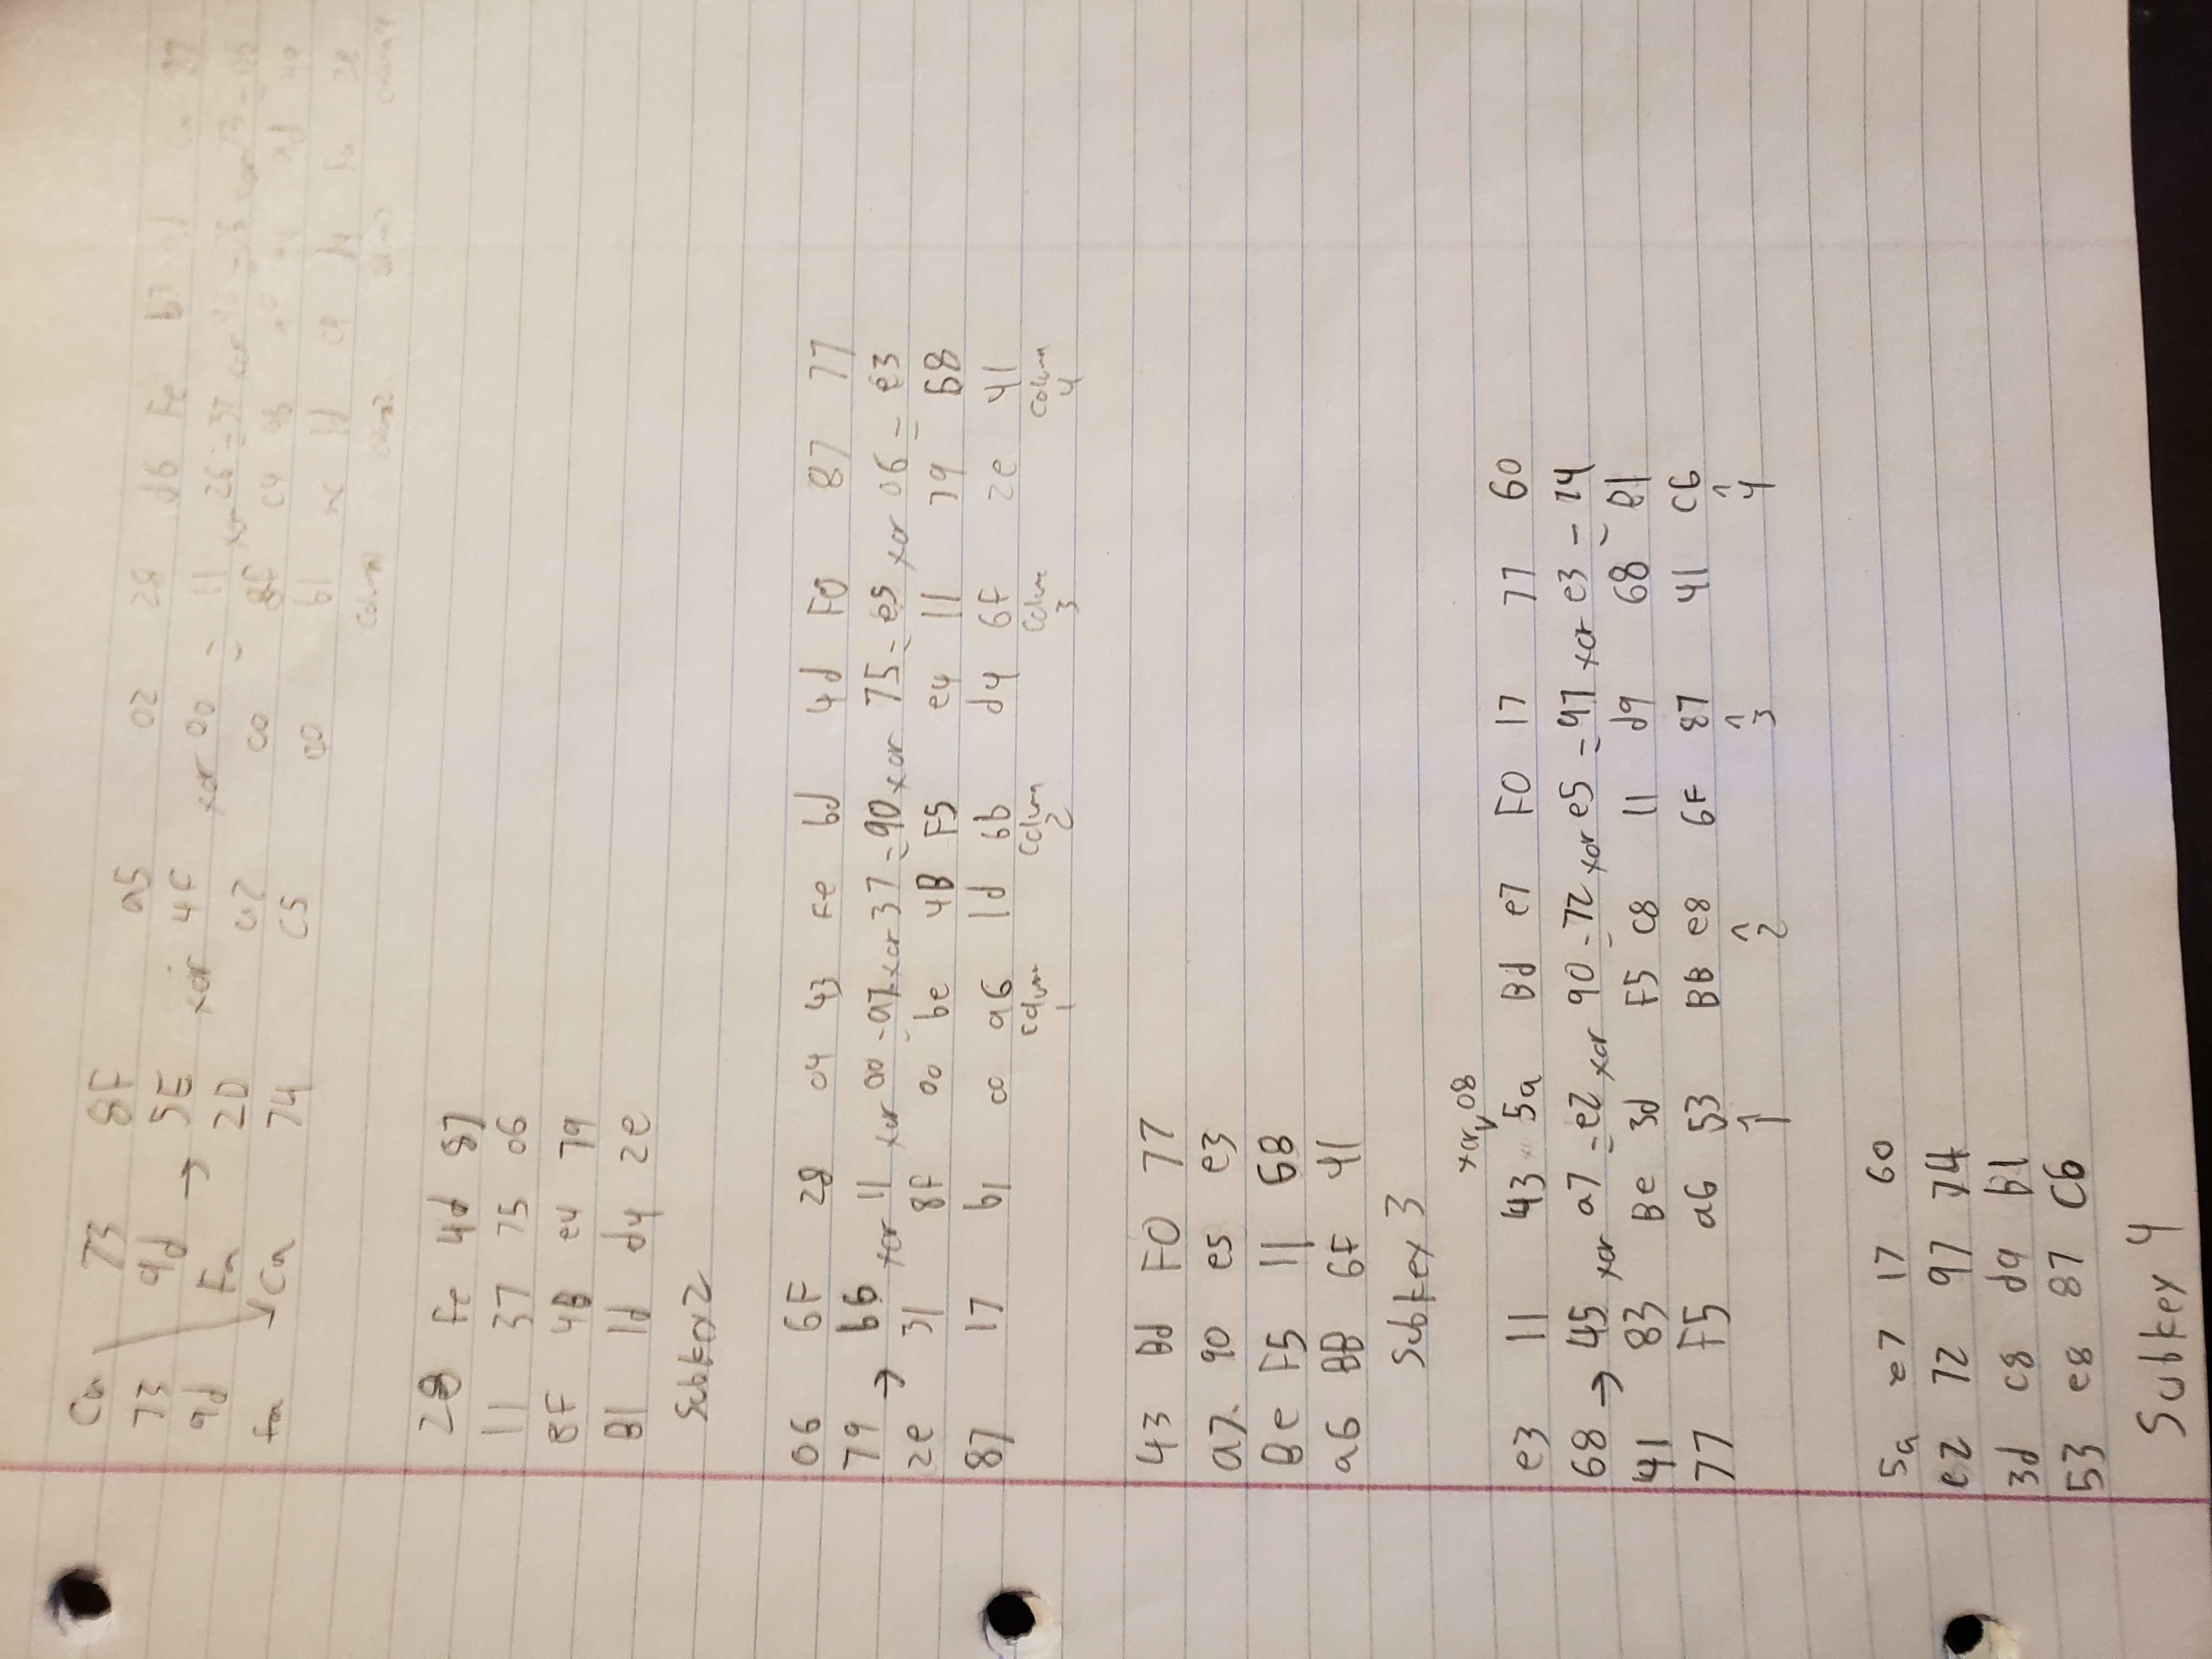 Ca 73 8F a5 02 28 d6 Fe b3 87
73 9d → 5E xor 4F xor 00 = 11 xor 26 = 37 xor = xor 73 =
9d Fa 2D a2 00 8F c4
fa Ca 74 C5 00 b1 1d c9 d4 Fa 2e
Column1 Column2 Column3 Column4
28 Fe 4d 87
11 37 75 06
8F 4B e4 79
B1 1d d4 2e
Subkey2
06 6F 28 04 43 Fe bd 4d F0 87 77
79 → b6 xor 11 xor 00 = a7 xor 37 = 90 xor 75 = e5 xor 06 = e3
2e 31 8F 00 be 4B F5 e4 11 79 68
87 17 b1 00 a6 1d bb d4 6F 2e 41
Column Column Column Column
1 2 3 4
43 Bd F0 77
a7 90 e5 e3
Be F5 11 68
a6 BB 6F 41
Subkey 3
xor 08
e3 11 43 5a Bd e7 F0 17 77 60
68 → 45 xor a7 = e2 xor 90 = 72 xor e5 = 97 xor e3 = 74
41 83 Be 3d F5 c8 11 d9 68 B1
77 F5 a6 53 BB e8 6F 87 41 C6
1 2 3 4
5a e7 17 60
e2 72 97 74
3d c8 d9 B1
53 e8 87 C6
Subkey 4